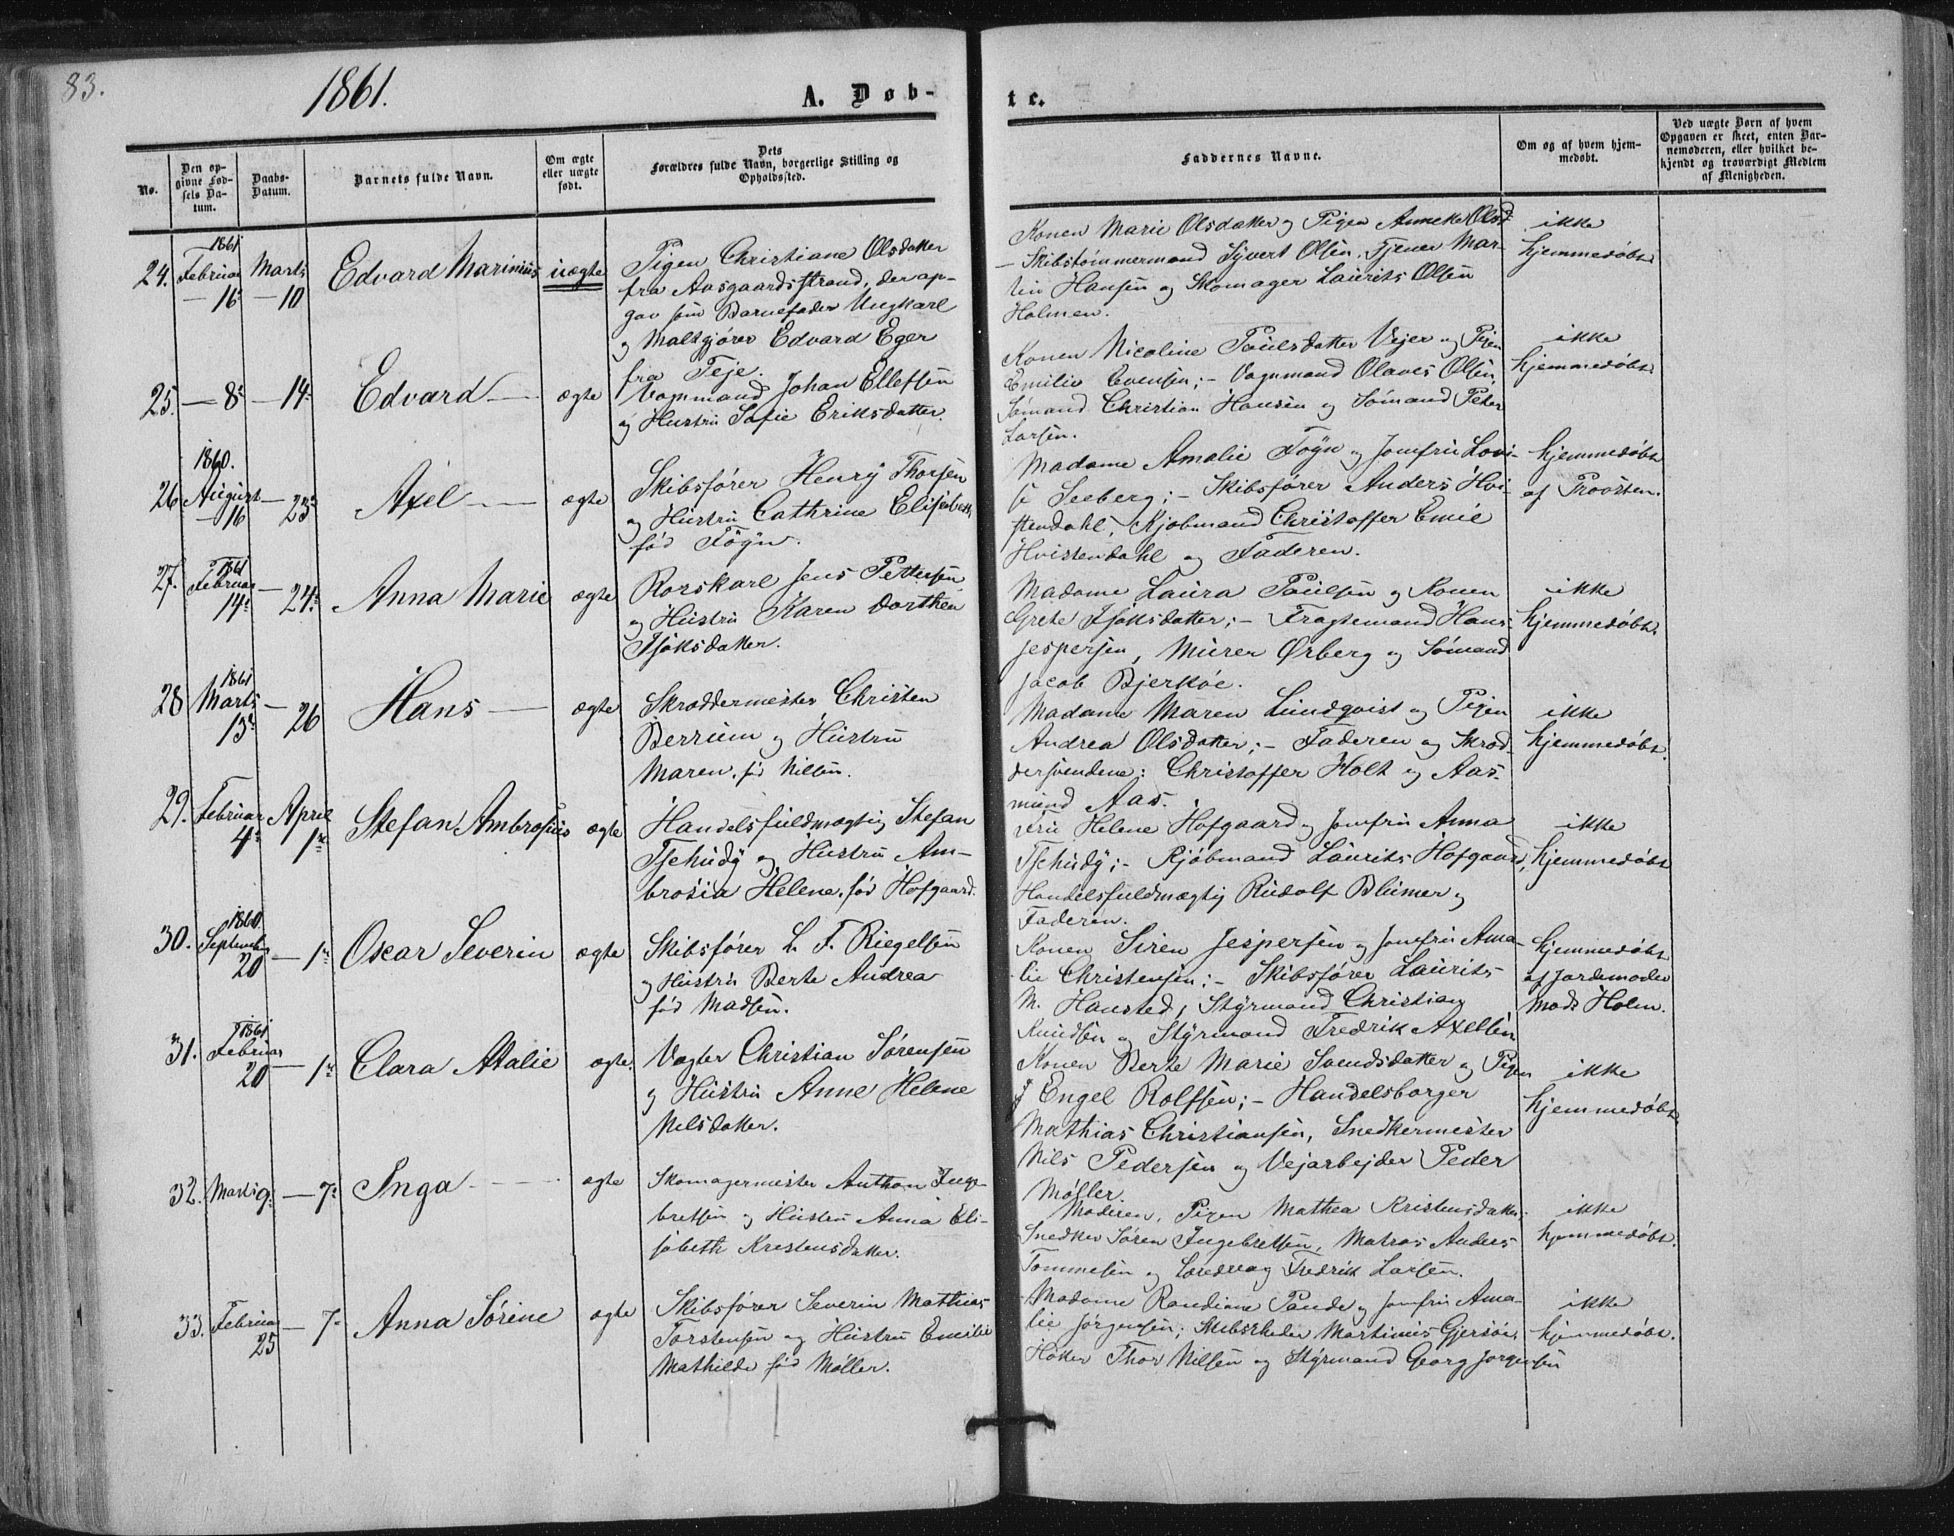 83.
1861.
A. Døb-
te.
No.
Den op-
givne Fød-
sels Da-
tum.
Daabs-
Datum.
Barnets fulde Navn.
Om ægte
eller uægte
født.
Dets
Forældres fulde Navn, borgerlige Stilling og
Opholdssted.
Faddernes Navne.
Om og af hvem hjem-
medøbt.
Ved uægte Børn af hvem
Opgaven er skeet, enten Bar-
nemoderen, eller hvilket be-
kjendt og troværdigt Medlem
af Menigheden.
24. 1861 Februar 16 Marts 10 Edvard Marinius uægte
Pigen Christiane Olsdatter
fra Aasgaardsstrand, der op-
gav som Barnefader Ungkarl
og Maltgjører Edvard Eger
fra Teje.
Konen Marie Olsdatter og Pigen Anneke Olsd
- Skibstømmermand Syvert Olsen, Tjener Mar-
tin Hansen og Skomager Laurits Olsen
Holmen.
ikke
hjemmedøbt.
25. — 8 — 14 Edvard — ægte
Vognmand Johan Ellefsen
og Hustru Sofie Eriksdatter.
Konen Nicoline Poulsdatter Vejer og Pigen
Emilie Evensen; - Vognmand Olaves Olsen,
Sømand Christian Hansen og Sømand Peter
Larsen.
ikke
hjemmedøbt.
26 1860. August 16 — 23 Axel — ægte
Skibsfører Henry Thorsen
og Hustru Cathrine Elisabeth
fød Føyn.
Madame Amalie Føyn og Jomfru Lovi-
se Seeberg; - Skibsfører Anders Hvi-
stendahl, Kjøbmand Christoffer Emil
Hvistendahl og Faderen.
hjemmedøbt
af Provsten.
27. 1861 Februar 14 — 24 Anna Marie ægte
Rorskarl Jens Pettersen
og Hustru Karen Dorthea
Isaksdatter.
Madame Laura Poulsen og Konen
Grete Isaksdatter; - Fragtemand Hans
Jespersen, Murer Ørberg og Sømand
Jacob Bjerkøe.
ikke
hjemmedøbt.
28 1861 Marts 13 — 26 Hans — ægte
Skræddermester Christen
Berrum og Hustru
Maren, fød Nilsen.
Madame Maren Lundqvist og Pigen
Andrea Olsdatter; - Faderen og Skræd-
dersvendene: Christoffer Holt og Aas-
mund Aas.
ikke
hjemmedøbt.
29. Februar 4 April 1ste Stefan Ambrosius ægte
Handelsfuldmægtig Stefan
Tschudy og Hustru Am-
brosia Helene, fød Hofgaard.
Fru Helene Hofgaard og Jomfru Anna
Tschudy; - Kjøbmand Laurits Hofgaard,
Handelsfuldmægtig Rudolf Blumer og
Faderen.
ikke
hjemmedøbt
30. 1860 September 20 — 1ste Oscar Severin ægte
Skibsfører L. F. Riegelsen
og Hustru Berte Andrea
fød Madsen.
Konen Siren Jespersen og Jomfru Ama-
lie Christensen; - Skibsfører Laurits
M. Hansted, Styrmand Christian
Knudsen og Styrmand Fredrik Axelsen
hjemmedøbt
af Jordemoder
Mads Holm.
31. 1861 Februar 20 — 1ste Clara Atalie ægte.
Vægter Christian Sørensen
og Hustru Anne Helene
Nilsdatter.
Konen Berte Marie Svendsdatter og Pigen
Engel Rolfsen; - Handelsborger
Mathias Christiansen, Snedkermester
Nils Pedersen og Vejarbejder Peder
Møller.
ikke
hjemmedøbt.
32. Marts 9 — 7 Inga — ægte
Skomagermester Anthon Inge-
bretsen og Hustru Anna Eli-
sabeth Kristensdatter.
Moderen, Pigen Mathea Kristensdatter;
Snedker Søren Ingebretsen, Matros Anders
Tommesen og Læredreng Fredrik Larsen.
ikke
hjemmedøbt.
33. Februar 25 — 7 Anna Sørine ægte
Skibsfører Severin Mathias
Torstensen og Hustru Emilie
Mathilde fød Møller.
Madame Randiane Paude og Jomfru Ama-
lie Jørgensen; Skibsrheder Martinius Gjersøe,
Høker Thor Nilsen og Styrmand Georg Jørgensen
ikke
hjemmedøbt.